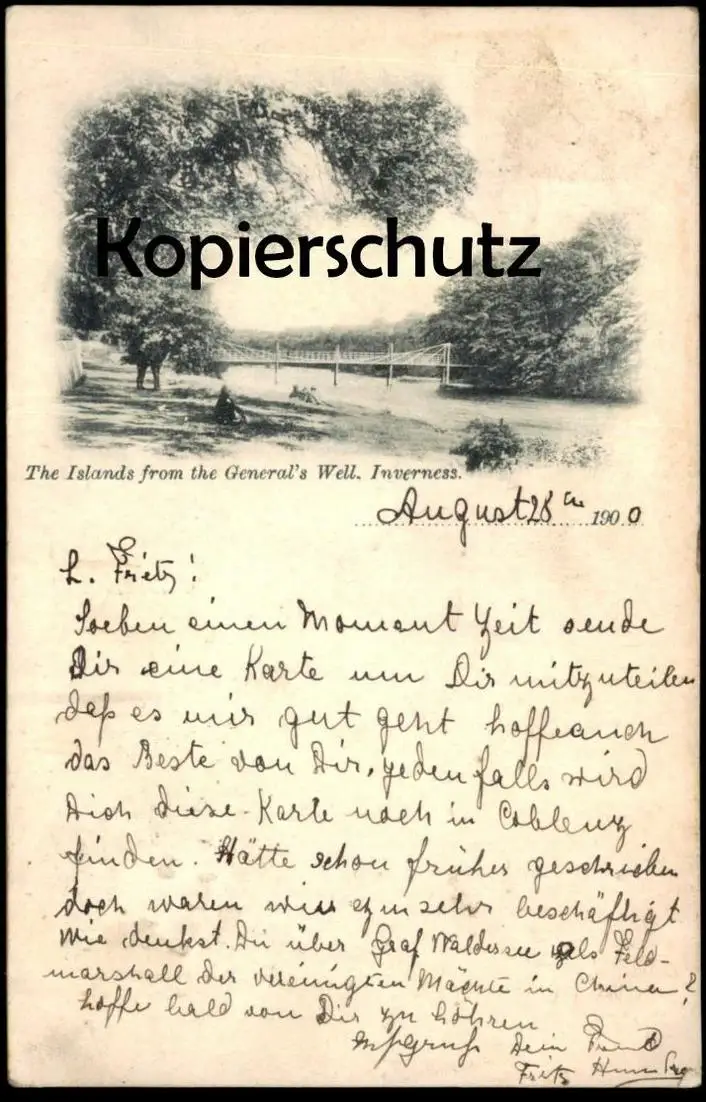 Kopierschutz
The Islands from the General's Well. Inverness.
August 28 1900
L. Fritz!
Soeben einen Moment Zeit sende
Dir eine Karte um Dir mitzuteilen
daß es mir gut geht hoffe auch
das Beste von Dir, jedenfalls wird
Dich diese Karte noch in Coblenz
finden. Hätte schon früher geschrieben
doch waren wir zu sehr beschäftigt
Wie denkst Du über Graf Waldersee als Feld-
marschall der vereinigten Mächte in China?
hoffe bald von Dir zu höhren
Dein Freund
Fritz